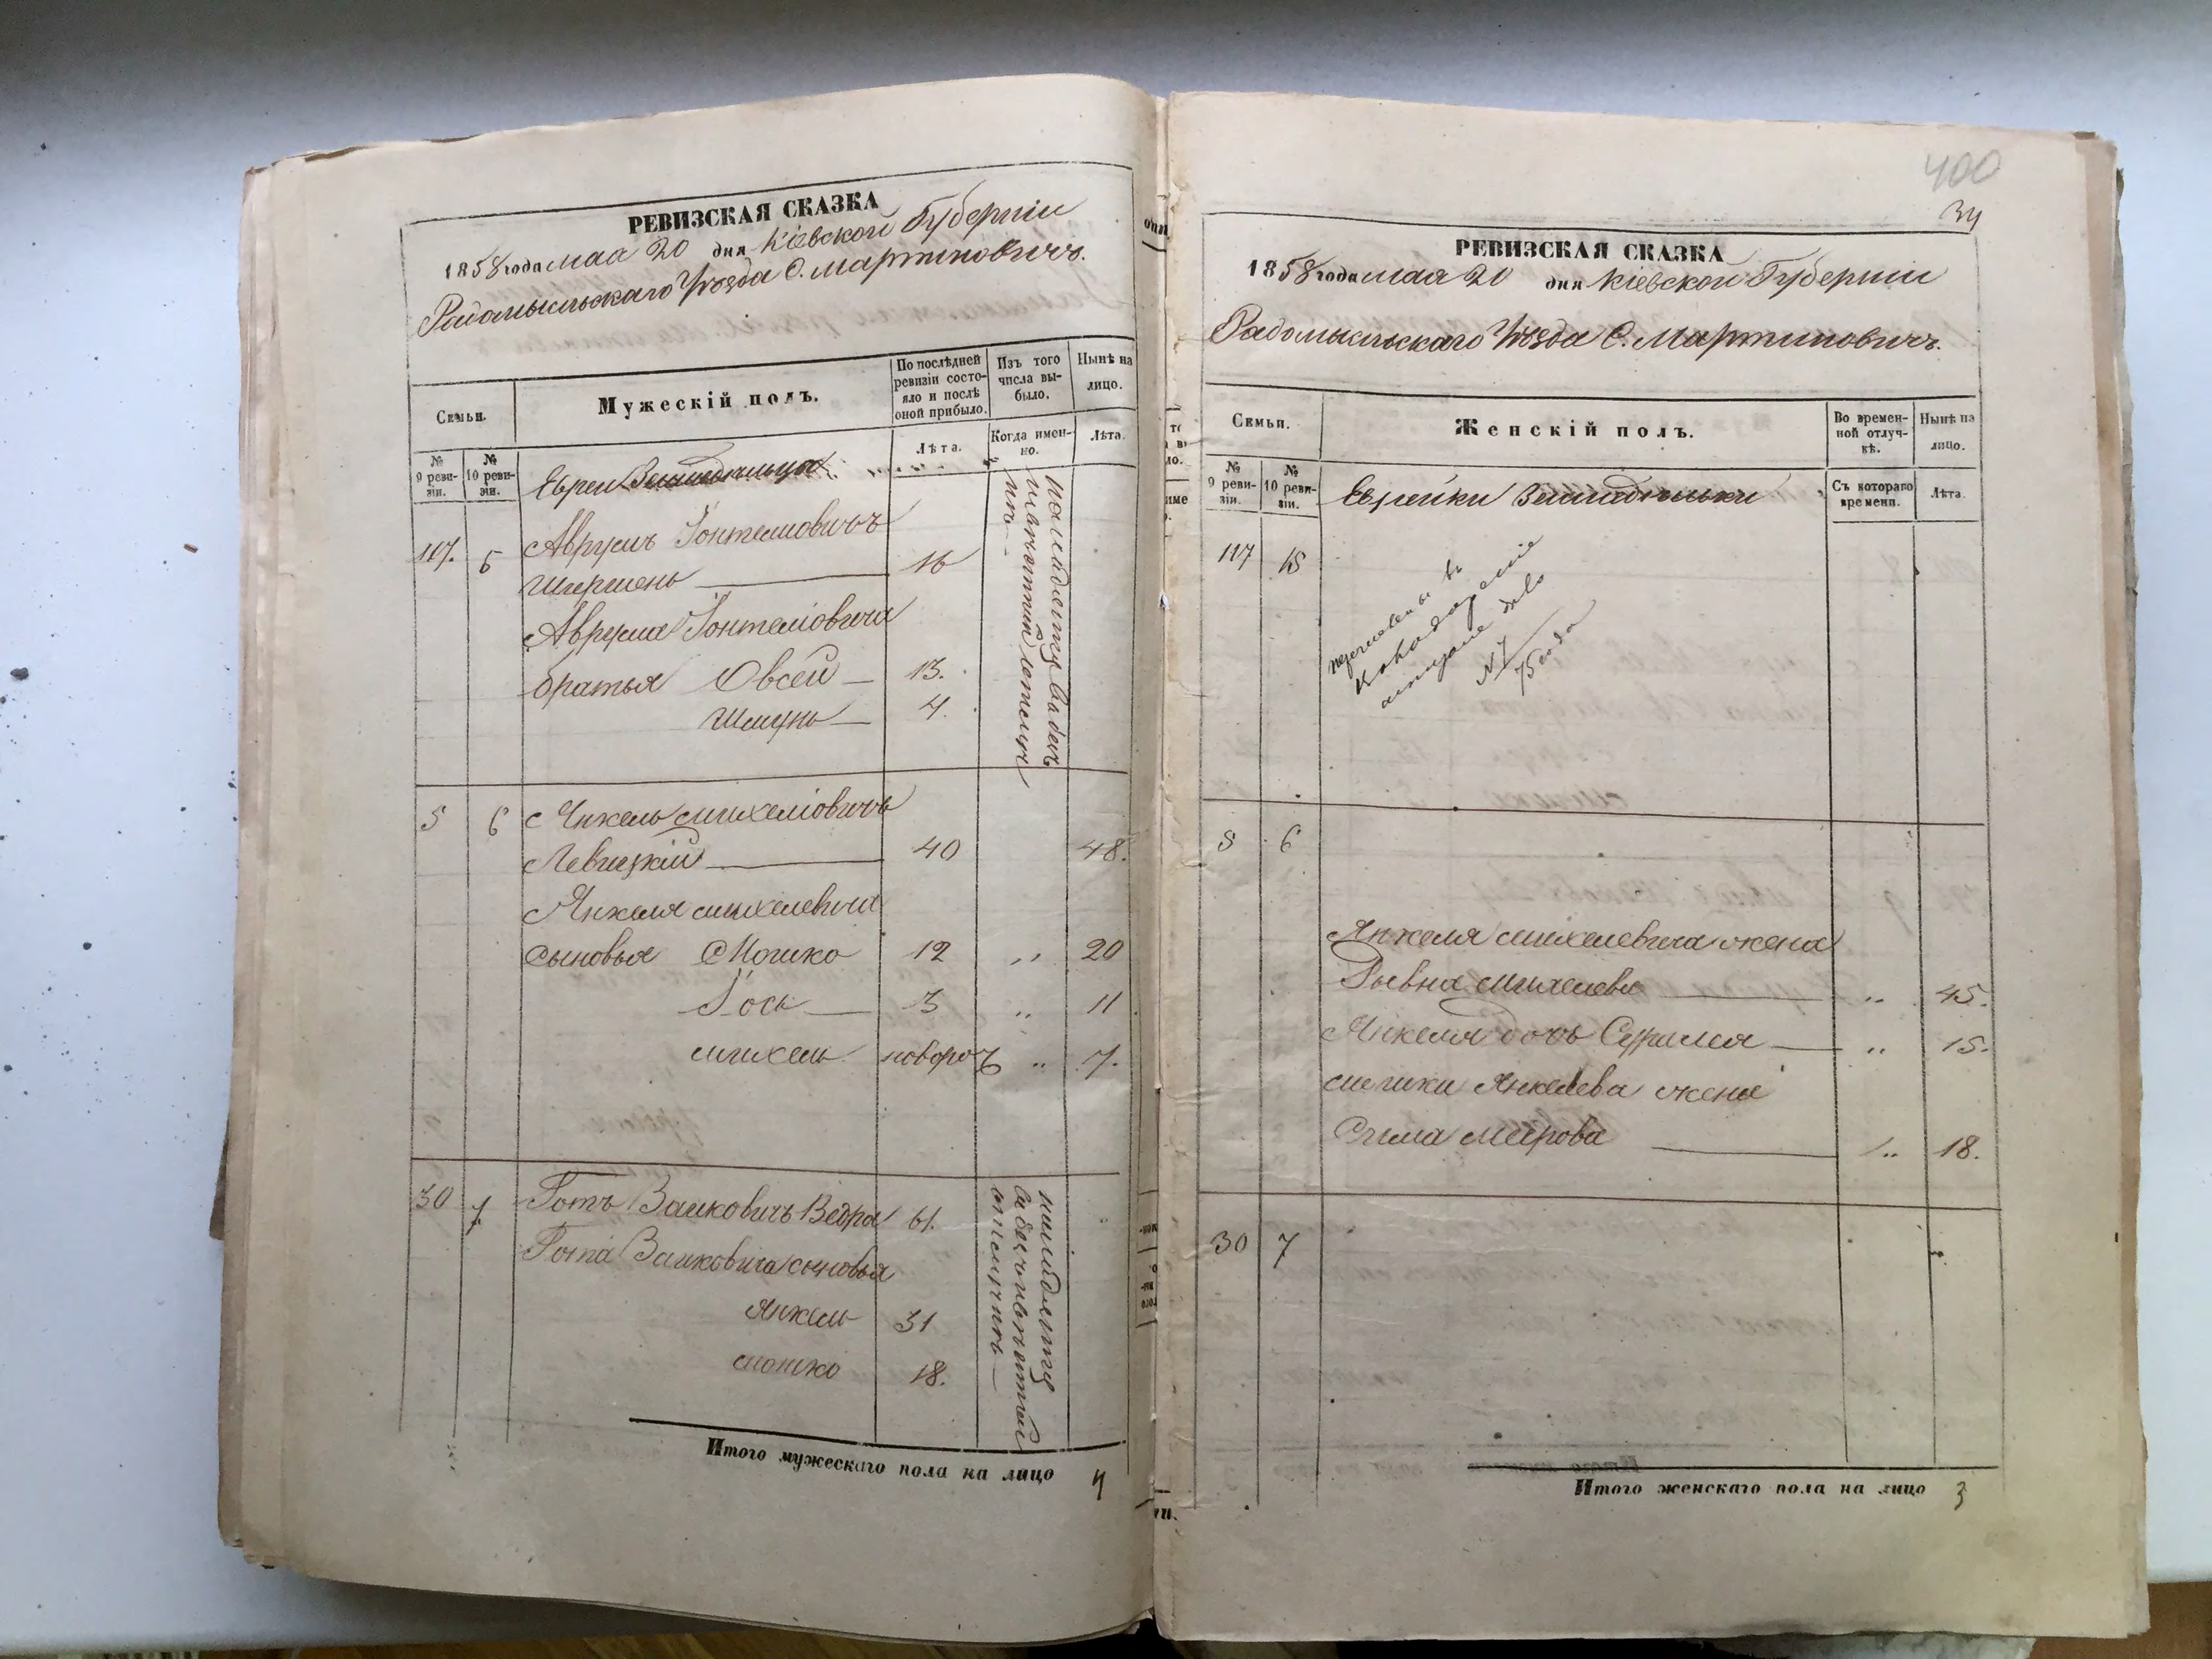 РЕВИЗСКАЯ СКАЗКА
1858 года мая 20 дня Кіевской Губерніи
Радомысльскаго Уѣзда С. Мартиновичъ.
Семьи.
Мужескій полъ.
По послѣдней ревизіи состояло и послѣ оной прибыло.
Изъ того числа выбыло.
Нынѣ на лицо.
№ 9 ревизіи.
№ 10 ревизіи.
Евреи Земледѣльцы
Лѣта.
Когда именно.
Лѣта.
117. 5 Аврумъ Іонтеліовичъ
16
Аврума Іонтеліовича
братья Овсей 13.
Шмунь 4.
5 6 Янкель Михеліовичъ
Левицкій 40 48.
Янкеля Михелевича
сыновья Мошко 12 " 20
Іось 3 " 11
Михель новорож " 7.
30 7 Готъ Заиковичъ Ведра 61.
Гота Заиковича сыновья
Янкель 31
Мошко 18.
Итого мужескаго пола на лицо 4
400
34
РЕВИЗСКАЯ СКАЗКА
1858 года мая 20 дня Кіевской Губерніи
Радомысльскаго Уѣзда С. Мартиновичъ.
Семьи.
Женскій полъ.
Во временной отлучкѣ.
Нынѣ на лицо.
№ 9 ревизіи.
№ 10 ревизіи.
Еврейки Земледѣльки
Съ котораго времени.
Лѣта.
117 15
дело
№ 7
75 года
5 6
Янкеля Михелевича жена
Рывна Михелева " 45.
Янкеля дочь Сурилея " 15.
Мошки Янкелева жена
Сима Меерова " 18.
30 7
Итого женскаго пола на лицо 3